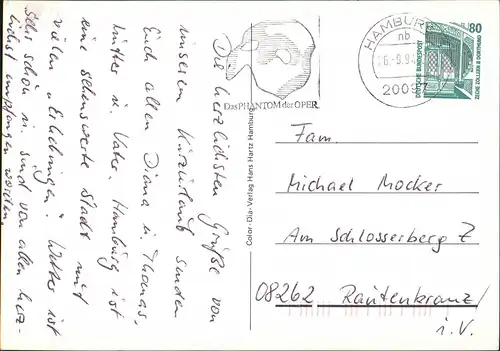 Die herzlichsten Grüße von
unserem Kurzurlaub senden
Euch allen Diana u. Thomas,
Mutter u. Vater. Hamburg ist
eine sehenswerte Stadt mit
vielen „Erhebungen". Wetter ist
sehr schön u. sind von allen herz-
lichst empfangen worden.
Das PHANTOM der OPER
HAMBURG
nb
-9.94
20097
80
DEUTSCHE BUNDESPOST
ZECHE ZOLLERN II DORTMUND
Color-Dia-Verlag Hans Hartz Hamburg
Fam.
Michael Mocker
Am Schlosserberg 7
08262 Rautenkranz/
i.V.